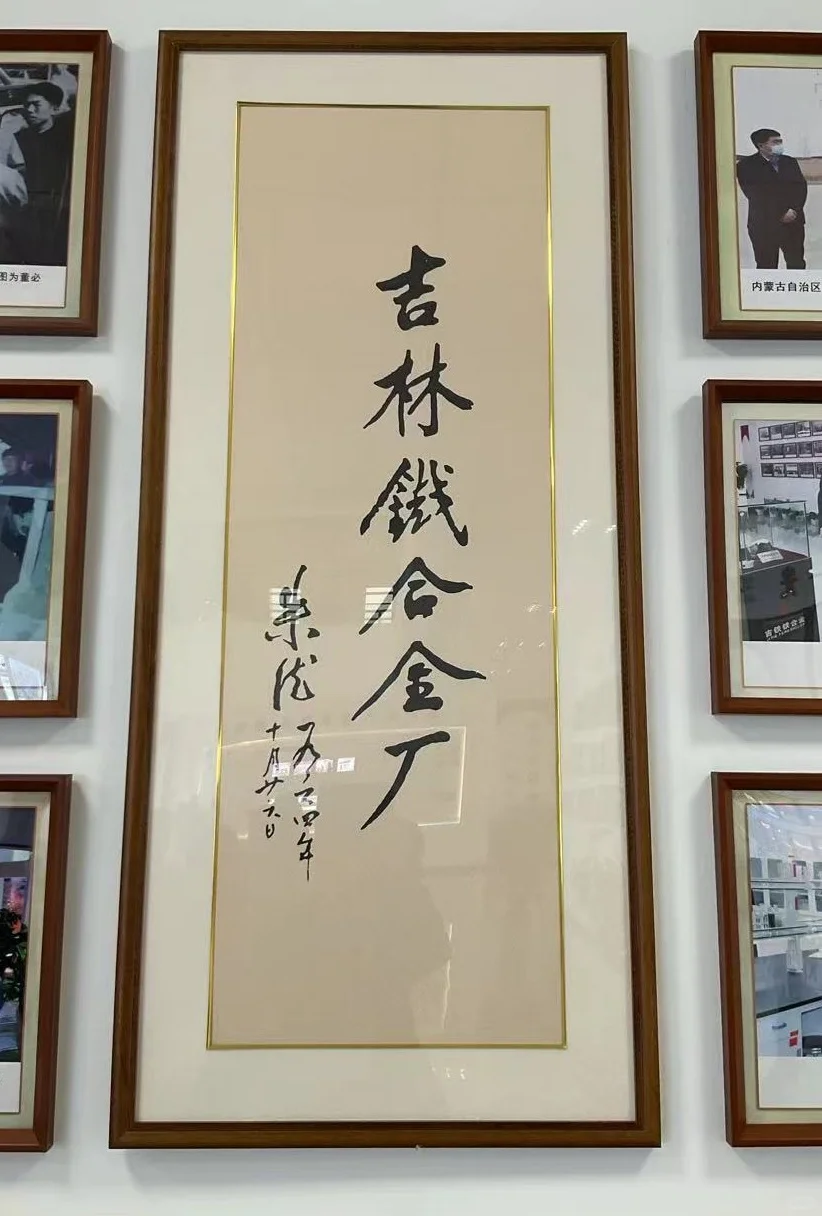 图为董必
吉林鐵合金厂
朱德
一九六四年
十月廿六日
内蒙古自治区
吉铁铁合金